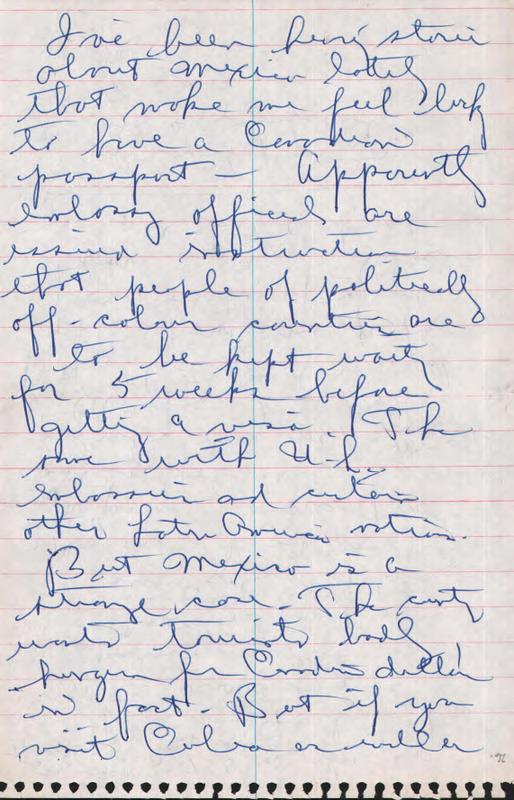 I've been hearing stories
about Mexico lately
that make me feel lucky
to have a Canadian
passport — Apparently
embassy officials are
issuing instructions
that people of politically
off-colour countries are
to be kept waiting
for 5 weeks before
getting a visa. The
same with U.K.
embassies and certain
other Latin American nations.
But Mexico is a
strange case. The country
wants tourists badly,
hungers for Canadian dollars
in fact. But if you
visit Cuba or